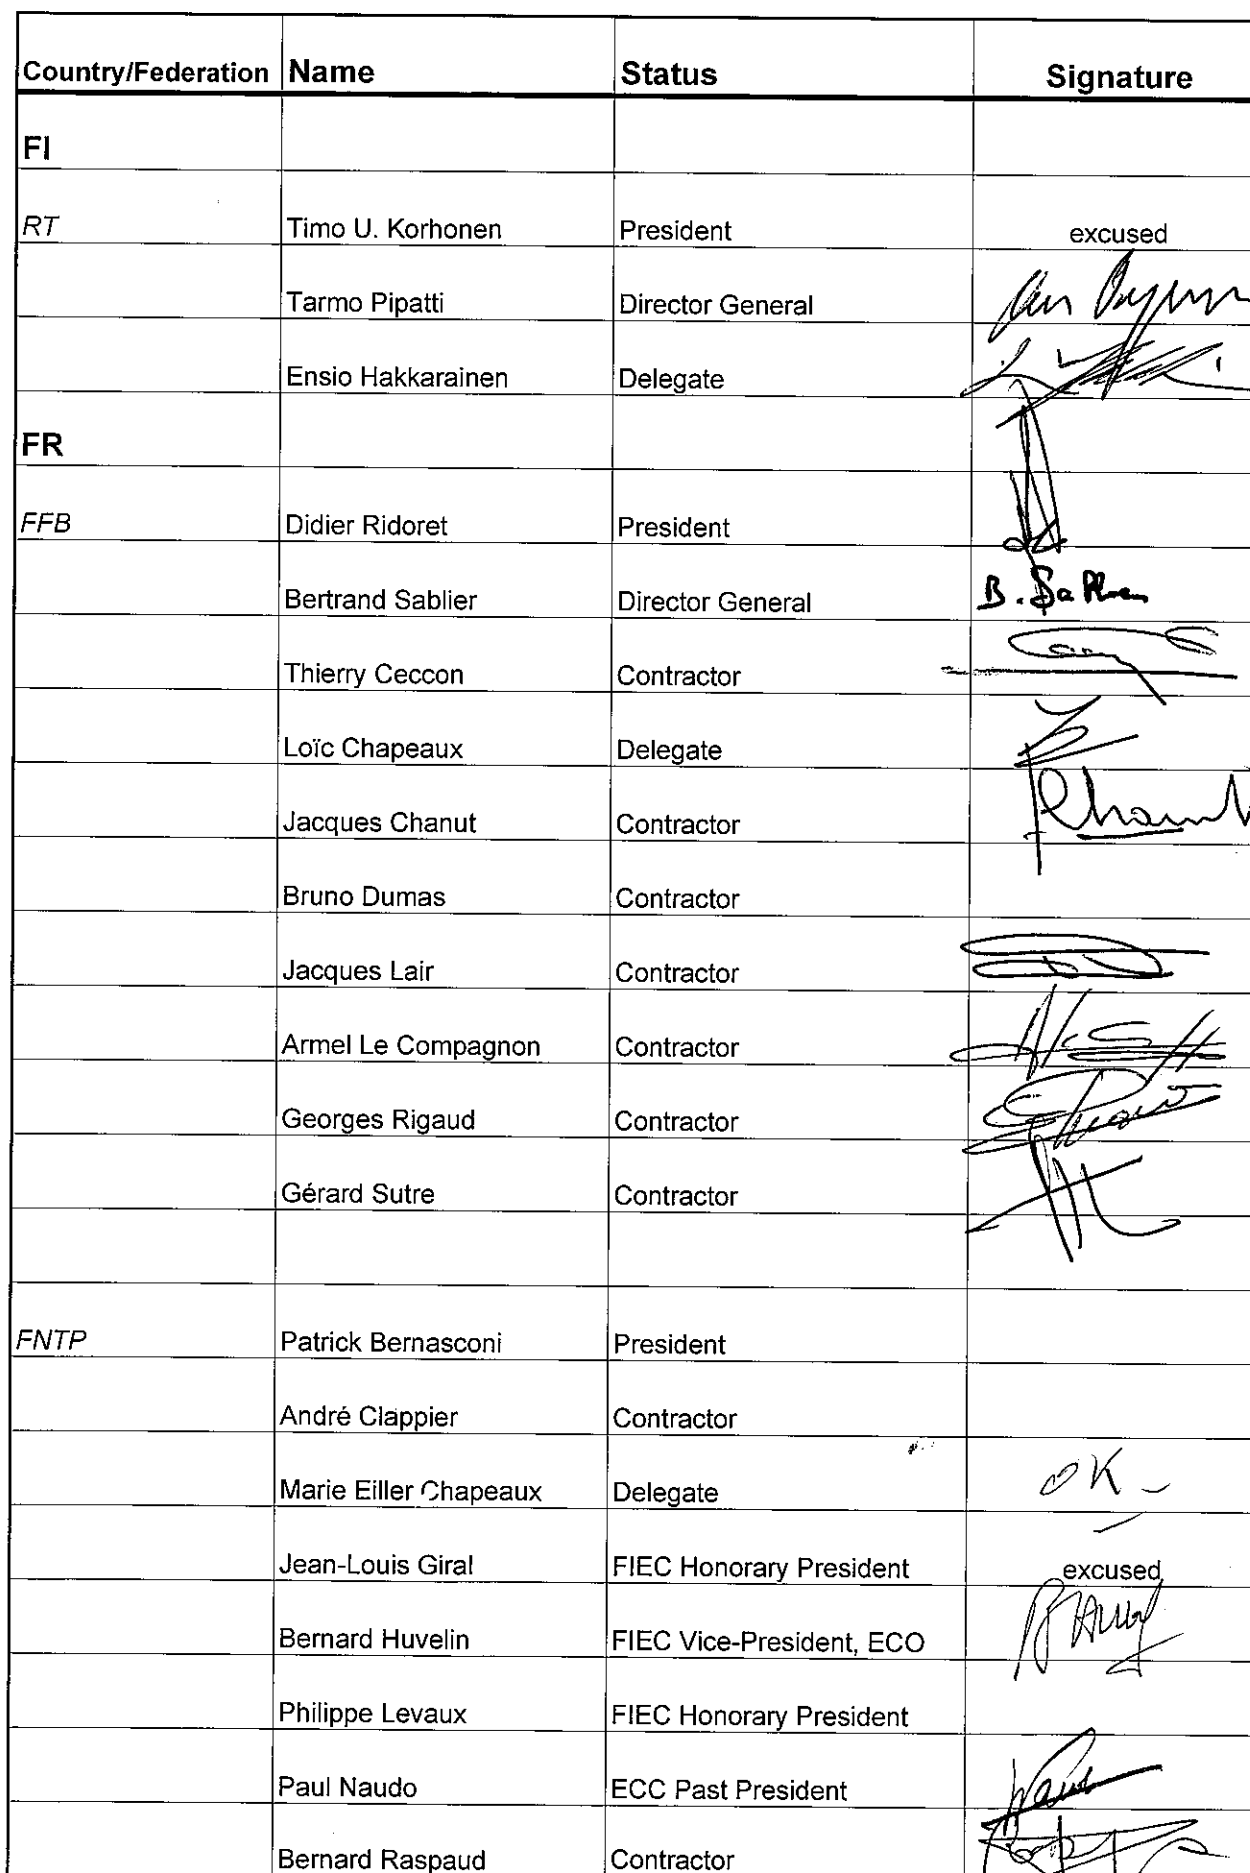 Country/Federation Name Status Signature
FI
RT Timo U. Korhonen President excused
Tarmo Pipatti Director General
Ensio Hakkarainen Delegate
FR
FFB Didier Ridoret President
Bertrand Sablier Director General B.
Thierry Ceccon Contractor
Loïc Chapeaux Delegate
Jacques Chanut Contractor
Bruno Dumas Contractor
Jacques Lair Contractor
Armel Le Compagnon Contractor
Georges Rigaud Contractor
Gérard Sutre Contractor
FNTP Patrick Bernasconi President
André Clappier Contractor
Marie Eiller Chapeaux Delegate OK
Jean-Louis Giral FIEC Honorary President excused
Bernard Huvelin FIEC Vice-President, ECO
Philippe Levaux FIEC Honorary President
Paul Naudo ECC Past President
Bernard Raspaud Contractor